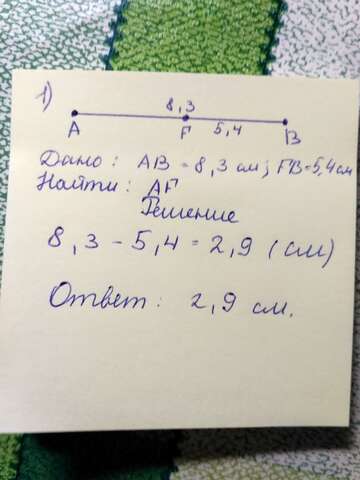 1)
8,3
A F 5,4 B
Дано: AB = 8,3 см; FB=5,4см
Найти: AF
Решение
8,3 - 5,4 = 2,9 (см)
Ответ: 2,9 см.